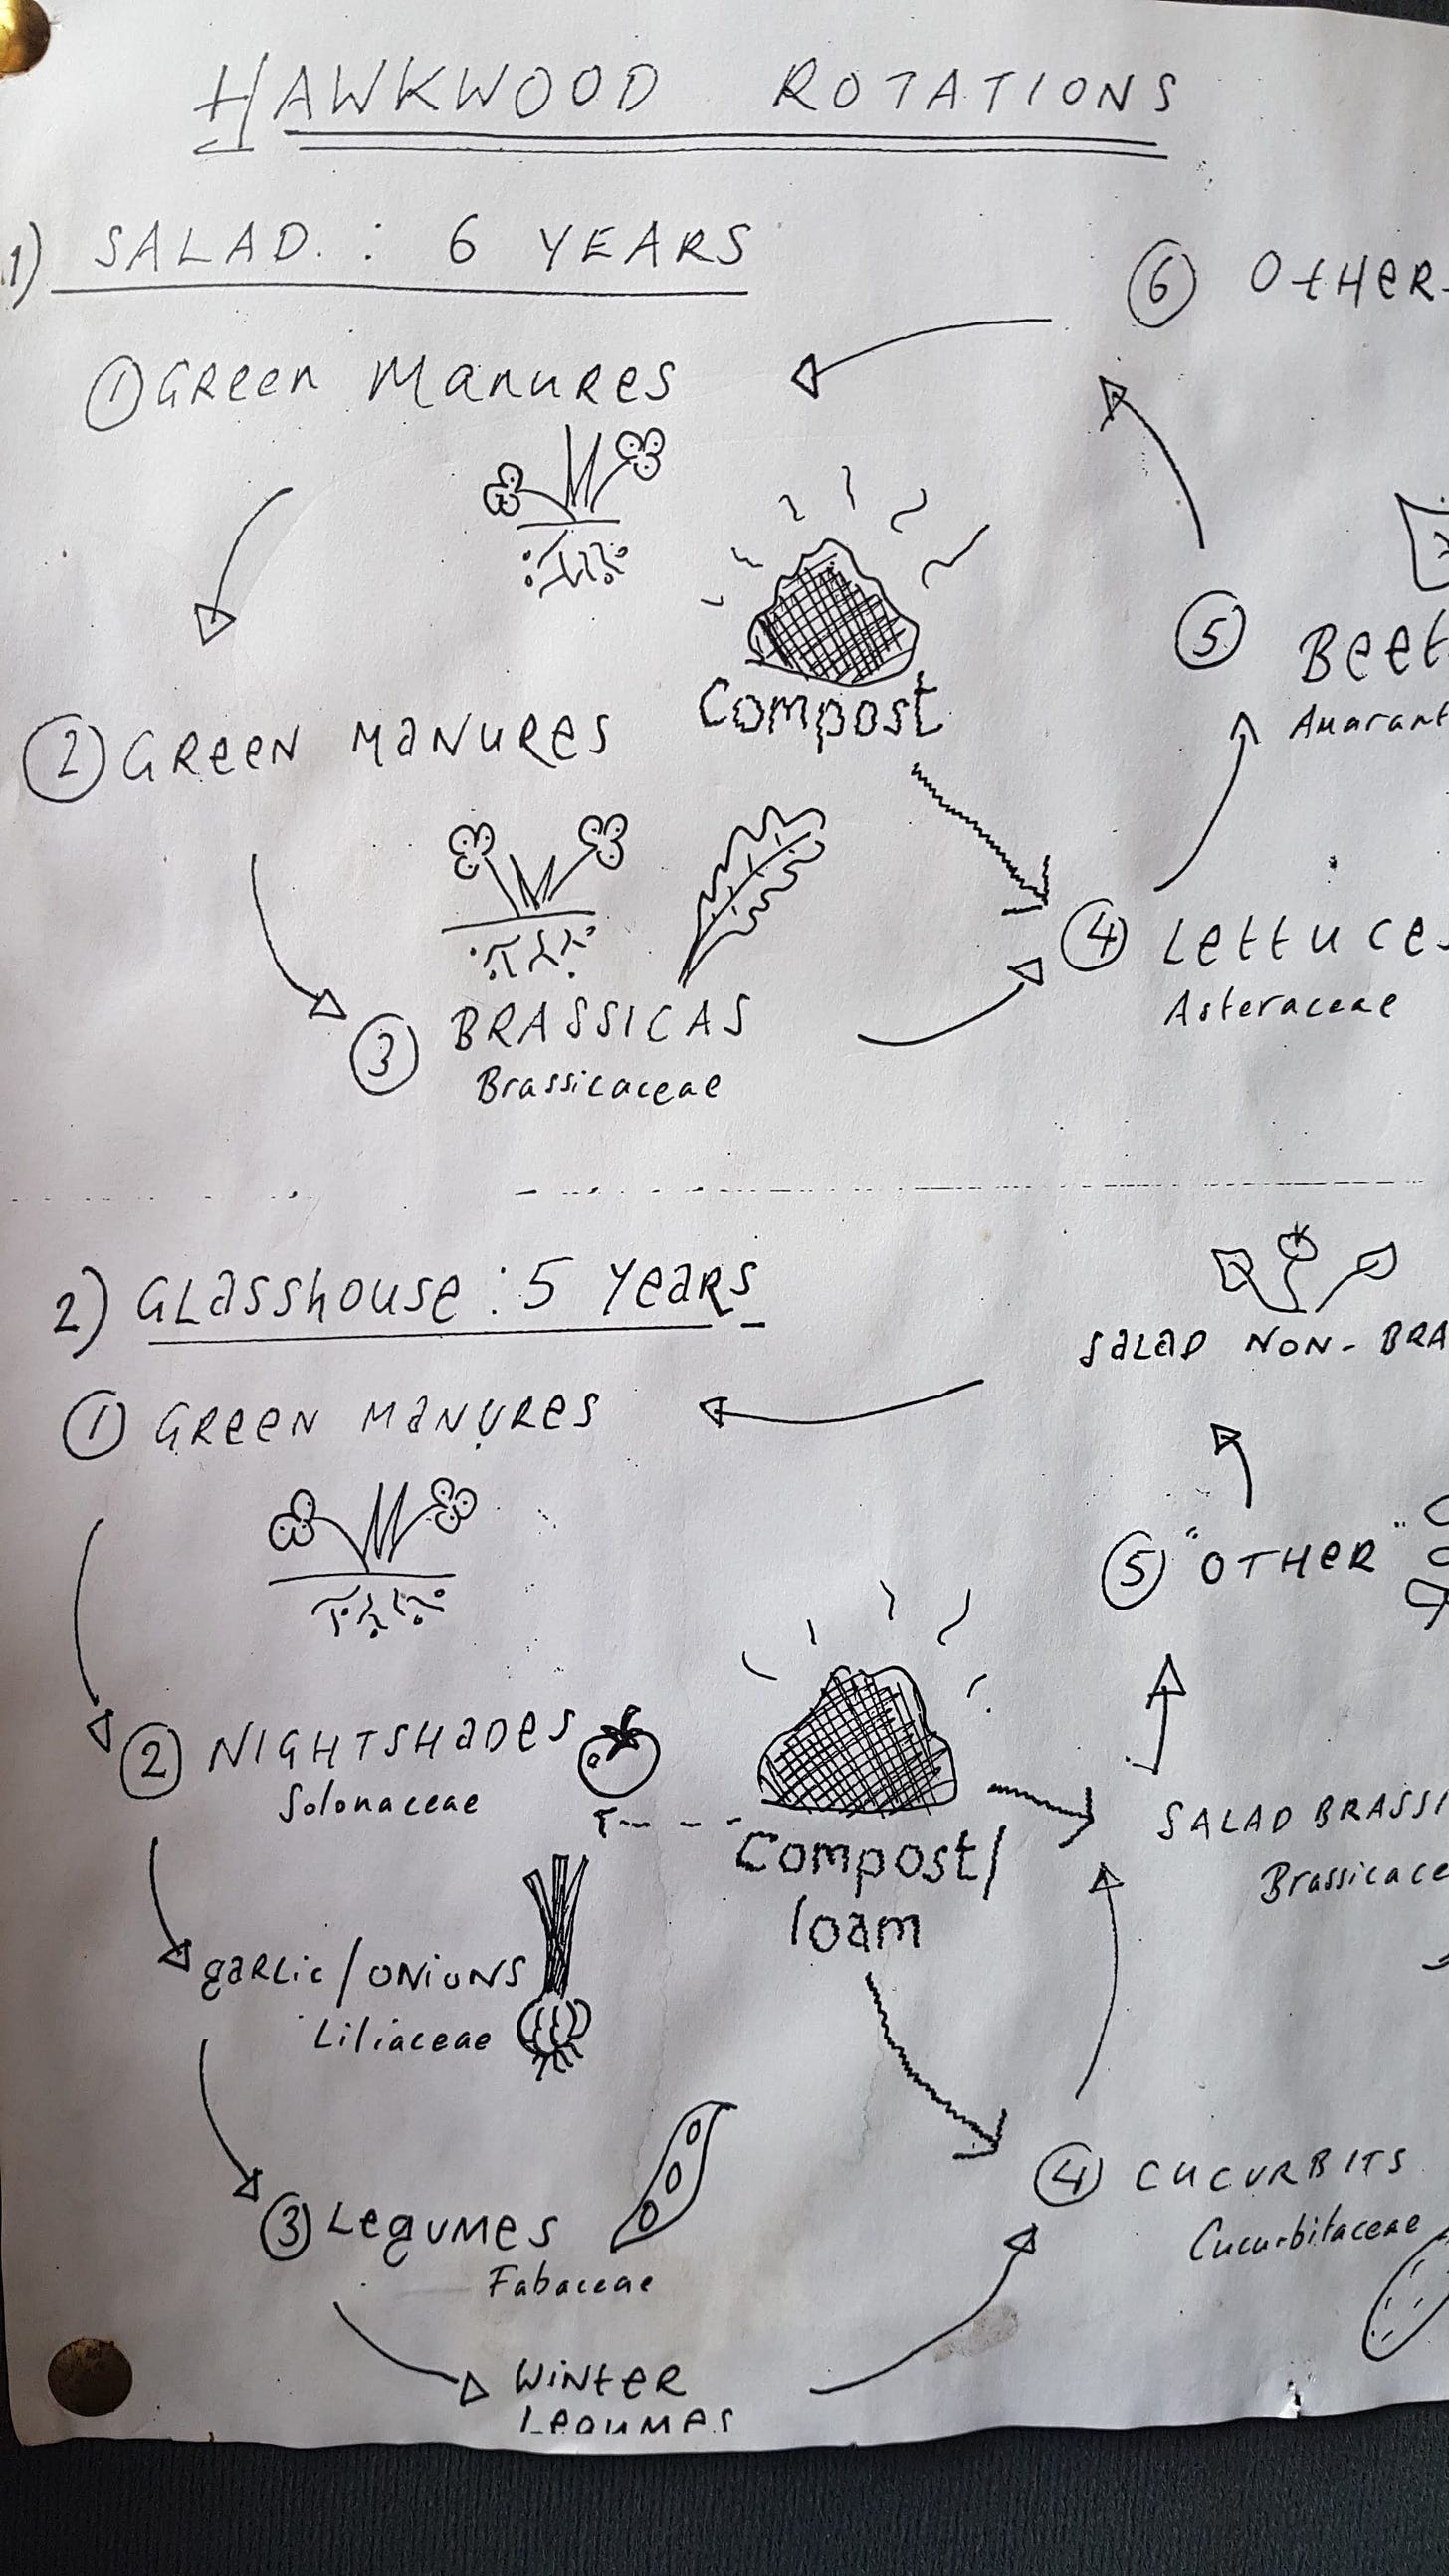 HAWKWOOD ROTATIONS
1) SALAD. : 6 YEARS
① GReen Manures
② GReeN MaNURes
③ BRASSICAS
Brassicaceae
Compost
④ Lettuce
Asteraceae
⑤ Beet
Amarant
⑥ OtHeR
2) GLasshouse : 5 Years
① GReeN MaNURes
② NIGHTSHaDes
Solonaceae
gaRLic/ONiONS
Liliaceae
③ LegUMes
Fabaceae
WiNteR
LegUMes
Compost/
loam
④ CUCURBITS
Cucurbitaceae
SALAD BRASSI
Brassicace
⑤ "OTHeR"
SaLaD NON-BRA